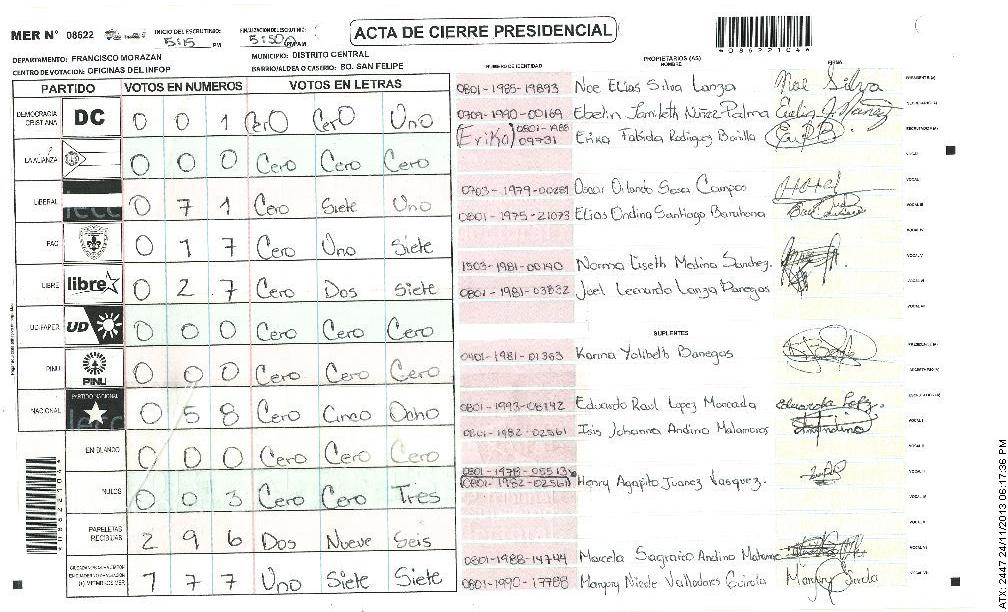 MER N° 08622
INICIO DEL ESCRUTINIO: 5:15 PM
FINALIZACION DEL ESCRUTINIO: 5:50 PM
ACTA DE CIERRE PRESIDENCIAL
*08622104*
DEPARTAMENTO: FRANCISCO MORAZAN
MUNICIPIO: DISTRITO CENTRAL
CENTRO DE VOTACION: OFICINAS DEL INFOP
BARRIO/ALDEA O CASERIO: BO. SAN FELIPE
PARTIDO VOTOS EN NUMEROS VOTOS EN LETRAS
DEMOCRACIA CRISTIANA DC 0 0 1 Cero Cero Uno
LA ALIANZA 0 0 0 Cero Cero Cero
LIBERAL 0 7 1 Cero Siete Uno
PAC 0 1 7 Cero Uno Siete
LIBRE libre 0 2 7 Cero Dos Siete
UD-FAPER UD 0 0 0 Cero Cero Cero
PINU PINU 0 0 0 Cero Cero Cero
NACIONAL PARTIDO NACIONAL 0 5 8 Cero Cinco Ocho
EN BLANCO 0 0 0 Cero Cero Cero
NULOS 0 0 3 Cero Cero Tres
PAPELETAS RECIBIDAS 2 9 6 Dos Nueve Seis
1 7 7 Uno Siete Siete
NUMERO DE IDENTIDAD
PROPIETARIOS (AS)
NOMBRE
FIRMA
0801-1985-19893 Noe Elias Silva Lanza Noé Silva
0709-1990-00169 Ebelin Janileth Nuñez Palma
(Erika) 0801-1988 09731 Erika Fabiola Rodriguez Bonilla
0703-1979-00281 Oscar Orlando Sosa Campos
0801-1975-21073 Elias Ondina Santiago Barahona
1503-1981-00190 Norma Liseth Medina Sanchez.
0801-1981-03832 Joel Leonardo Lanza Banegas
SUPLENTES
0401-1981-01363 Karina Yolibeth Banegas
0801-1993-08142 Eduardo Raul Lopez Moncada
0801-1982-02561 Isis Johanna Andino Matamoros
0801-1978-05513
(0801-1982-02561) Henry Agapito Juanez Vasquez.
0801-1988-14744 Marcela Sagrario Andino
0801-1990-17788 Margory Nicole Valladares
ATX 2447 24/11/2013 06:17:36 PM